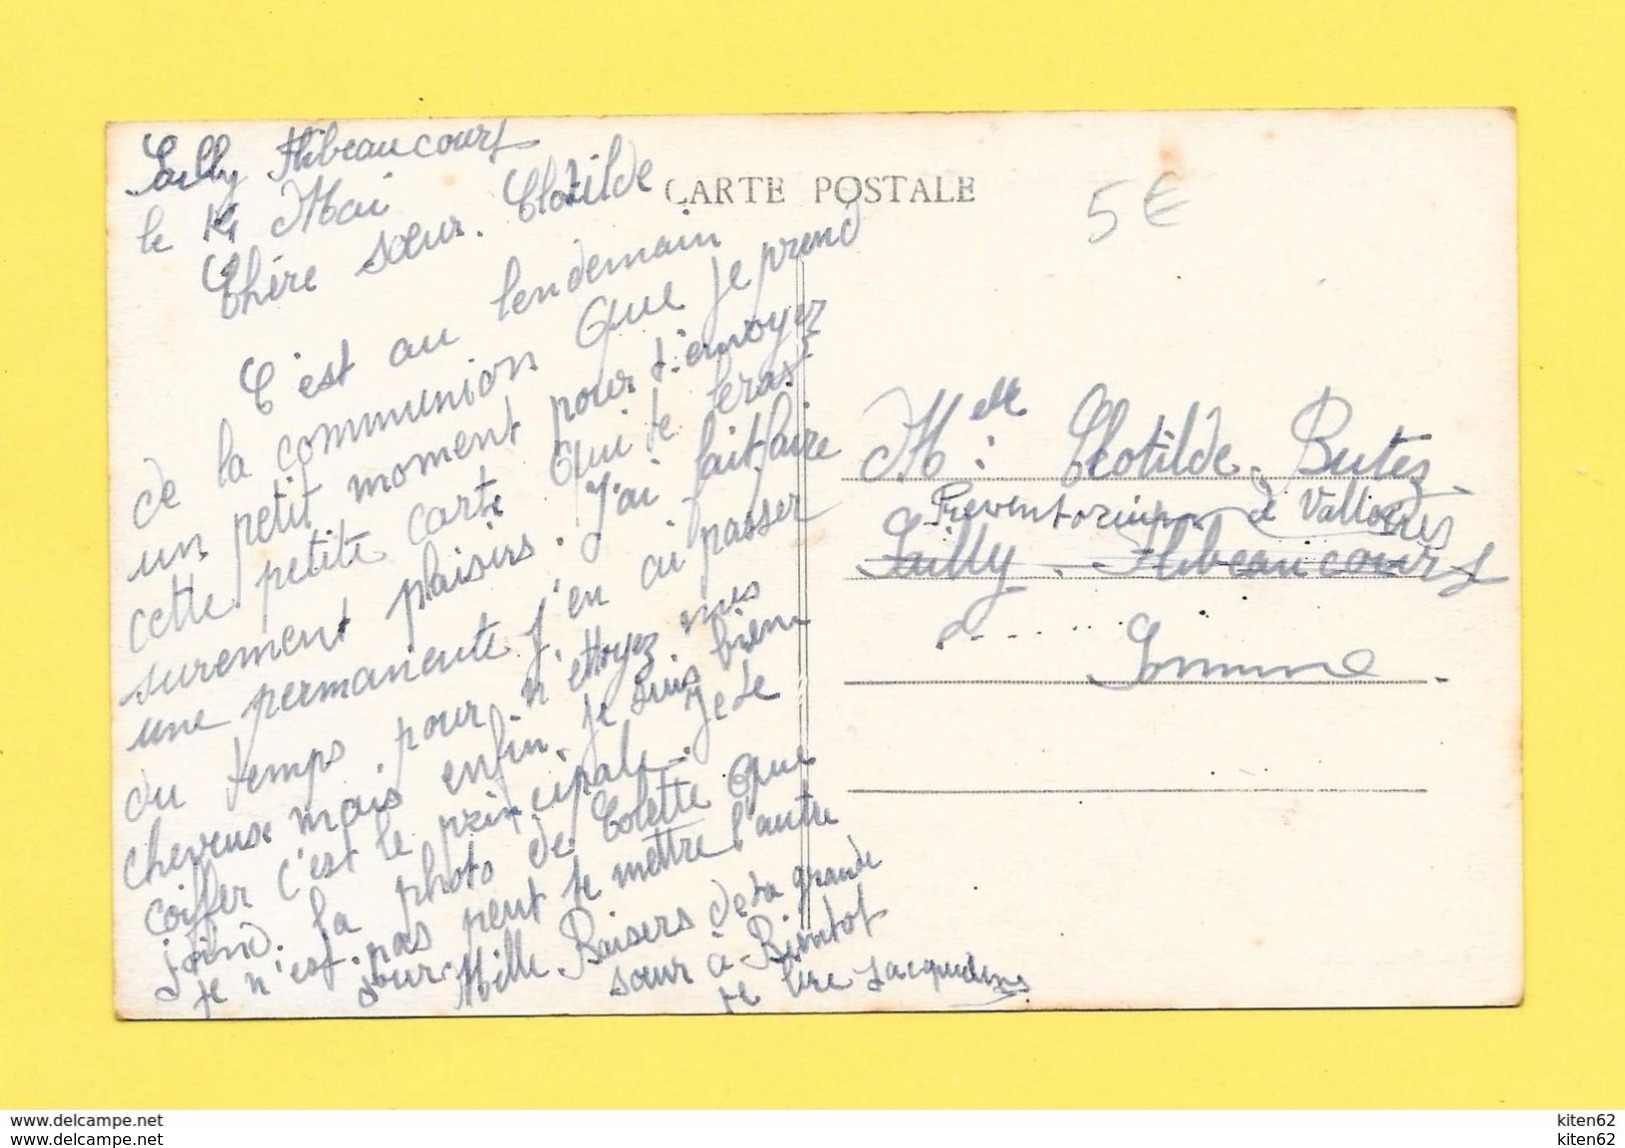 Sailly Flibeaucourt
le 14 Mai
Chère sœur. Clotilde
C'est au lendemain
de la communion que je prend
un petit moment pour t'envoyez
cette petite carte qui te feras
surement plaisirs. J'ai fait faire
une permanente J'en ai passer
du temps pour n'ettoyez mes
cheveux mais enfin. je suis bien
coiffer c'est le principale. Je te
joind. la photo de Colette que
je n'est pas peut te mettre l'autre
jour. Mille Baisers de ta grande
sœur à Bientot
te lire Jacqueline
CARTE POSTALE
5€
Melle Clotilde. Butez
Preventorium de Valloires
Sailly - Flibeaucourt
Somme.
www.delcampe.net
www.delcampe.net
kiten62
kiten62